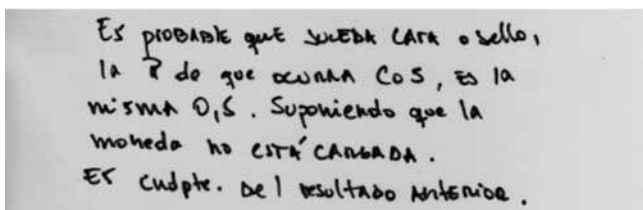 Es probable que suceda cara o sello,
la P de que ocurra C o S, es la
misma 0,5. Suponiendo que la
moneda no está cargada.
Es cudpte. Del resultado anterior.